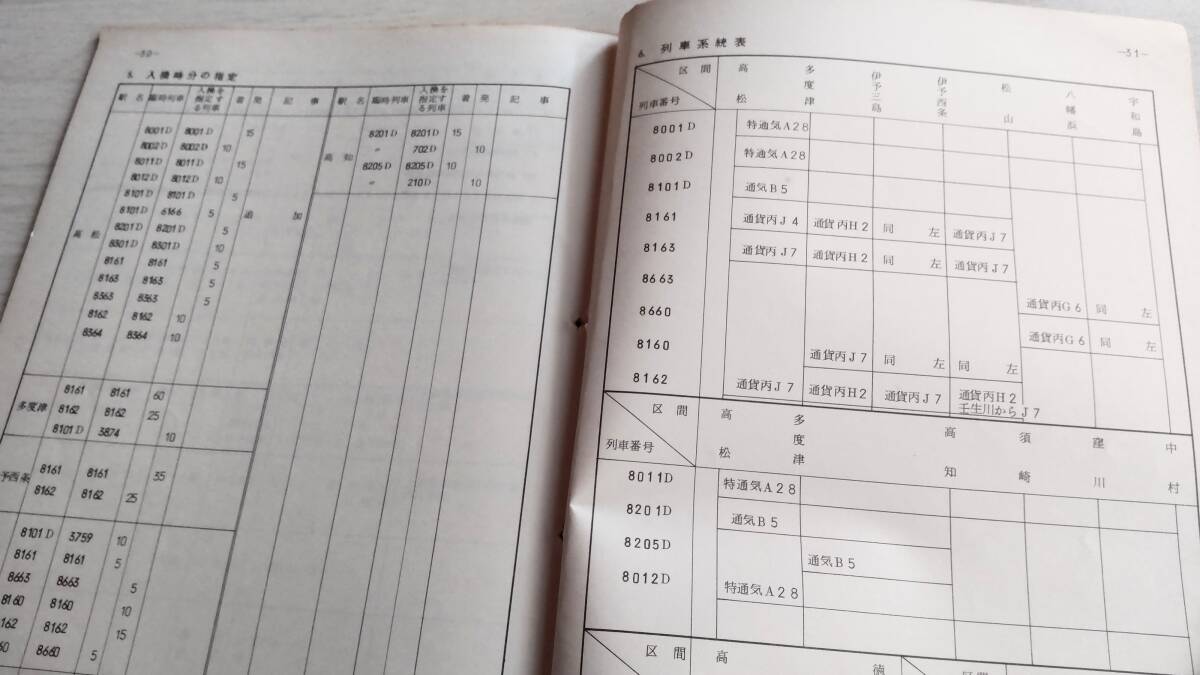 -30-
5. 入換時分の指定
駅名 臨時列車 入換を指定する列車 着 発 記事 駅名 臨時列車 入換を指定する列車 着 発 記事
高松
8001D 8001D 15
8002D 8002D 10
8011D 8011D 15
8012D 8012D 10
8101D 8101D 5
8101D 6166 5 追加
8201D 8201D 5
8301D 8301D 10
8161 8161 5
8163 8163 5
8363 8363 5
8162 8162 10
8364 8364 10
多度津
8161 8161 60
8162 8162 25
8101D 3874 10
予西条
8161 8161 35
8162 8162 25
8101D 3759 10
8161 8161 5
8663 8663 5
8160 8160 10
162 8162 15
60 8660 5
高知
8201D 8201D 15
〃 702D 10
8205D 8205D 10
〃 210D 10
-31-
6. 列車系統表
区間 高松 多度津 伊予三島 伊予西条 松山 八幡浜 宇和島
列車番号
8001D 特通気A28
8002D 特通気A28
8101D 通気B5
8161 通貨丙J4 通貨丙H2 同左 通貨丙J7
8163 通貨丙J7 通貨丙H2 同左 通貨丙J7
8663 通貨丙G6 同左
8660 通貨丙G6 同左
8160 通貨丙J7 同左 同左
8162 通貨丙J7 通貨丙H2 通貨丙J7 通貨丙H2
壬生川からJ7
区間 高松 多度津 高知 須崎 窪川 中村
列車番号
8011D 特通気A28
8201D 通気B5
8205D 通気B5
8012D 特通気A28
区間 高 徳 区間